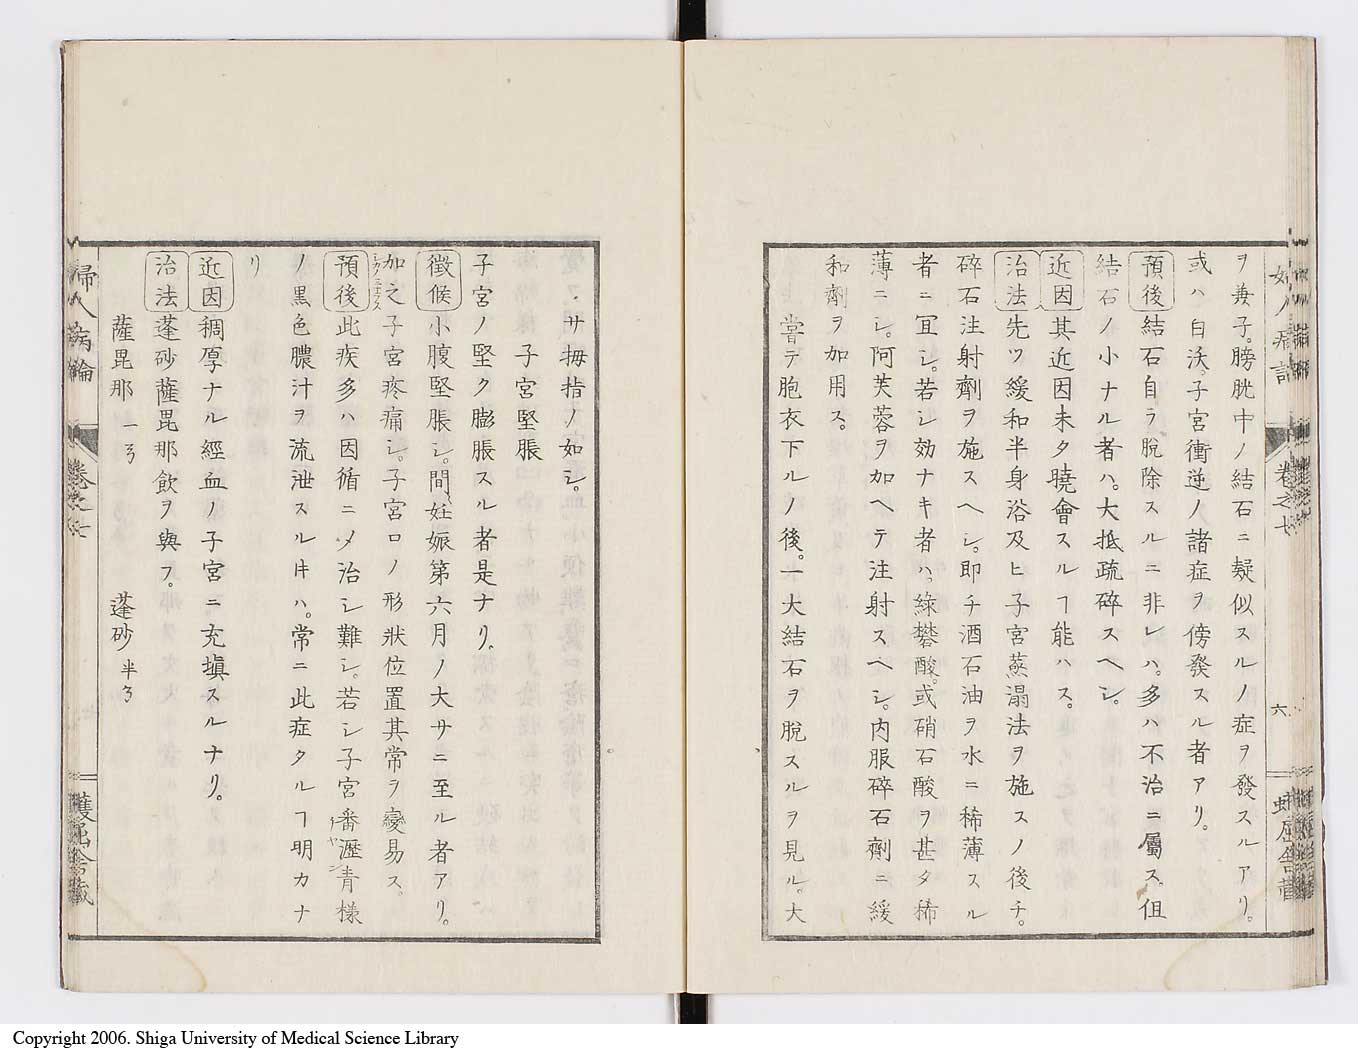 ヲ兼子。膀胱中ノ結石ニ疑似スルノ症ヲ發スルアリ。
或ハ白沃。子宮衝逆ノ諸症ヲ傍發スル者アリ。
預後 結石自ラ脱除スルニ非レハ。多ハ不治ニ屬ス。但
結石ノ小ナル者ハ。大抵疏碎スヘシ。
近因 其近因未タ曉會スルヿ能ハス。
治法 先ツ緩和半身浴及ヒ子宮蒸溻法ヲ施スノ後チ。
碎石注射劑ヲ施スヘシ。即チ酒石油ヲ水ニ稀薄スル
者ニ冝シ。若シ効ナキ者ハ。綠礬酸。或硝石酸ヲ甚タ稀
薄ニシ。阿芙蓉ヲ加ヘテ注射スヘシ。内服碎石劑ニ緩
和劑ヲ加用ス。
嘗テ胞衣下ルノ後。一大結石ヲ脱スルヲ見ル。大
卷之七
六
サ拇指ノ如シ。
子宮堅脹
子宮ノ堅ク膨脹スル者是ナリ。
徴候 小腹堅脹シ。間〻妊娠第六月ノ大サニ至ル者アリ。
加之子宮疼痛シ。子宮口ノ形狀位置其常ヲ變易ス。
シカノミナラス
預後 此疾多ハ因循ニメ治シ難シ。若シ子宮番瀝青樣
チヤン
ノ黒色膿汁ヲ流泄スル𪜈ハ。常ニ此症タルヿ明カナ
リ
近因 稠厚ナル經血ノ子宮ニ充塡スルナリ。
治法 蓬砂薩毘那飲ヲ與フ。
薩毘那 一ヲ 蓬砂 半ヲ
婦人病論
卷之七
Copyright 2006. Shiga University of Medical Science Library